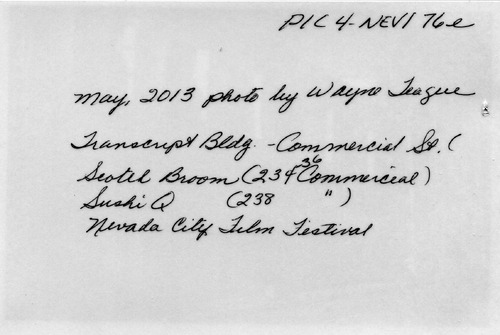 PIC 4-NEVI 76e
May, 2013 photo by Wayne Teague
Transcript Bldg. - Commercial St. (
36
Scotch Broom (234 Commercial)
Sushi Q (238 " )
Nevada City Film Festival